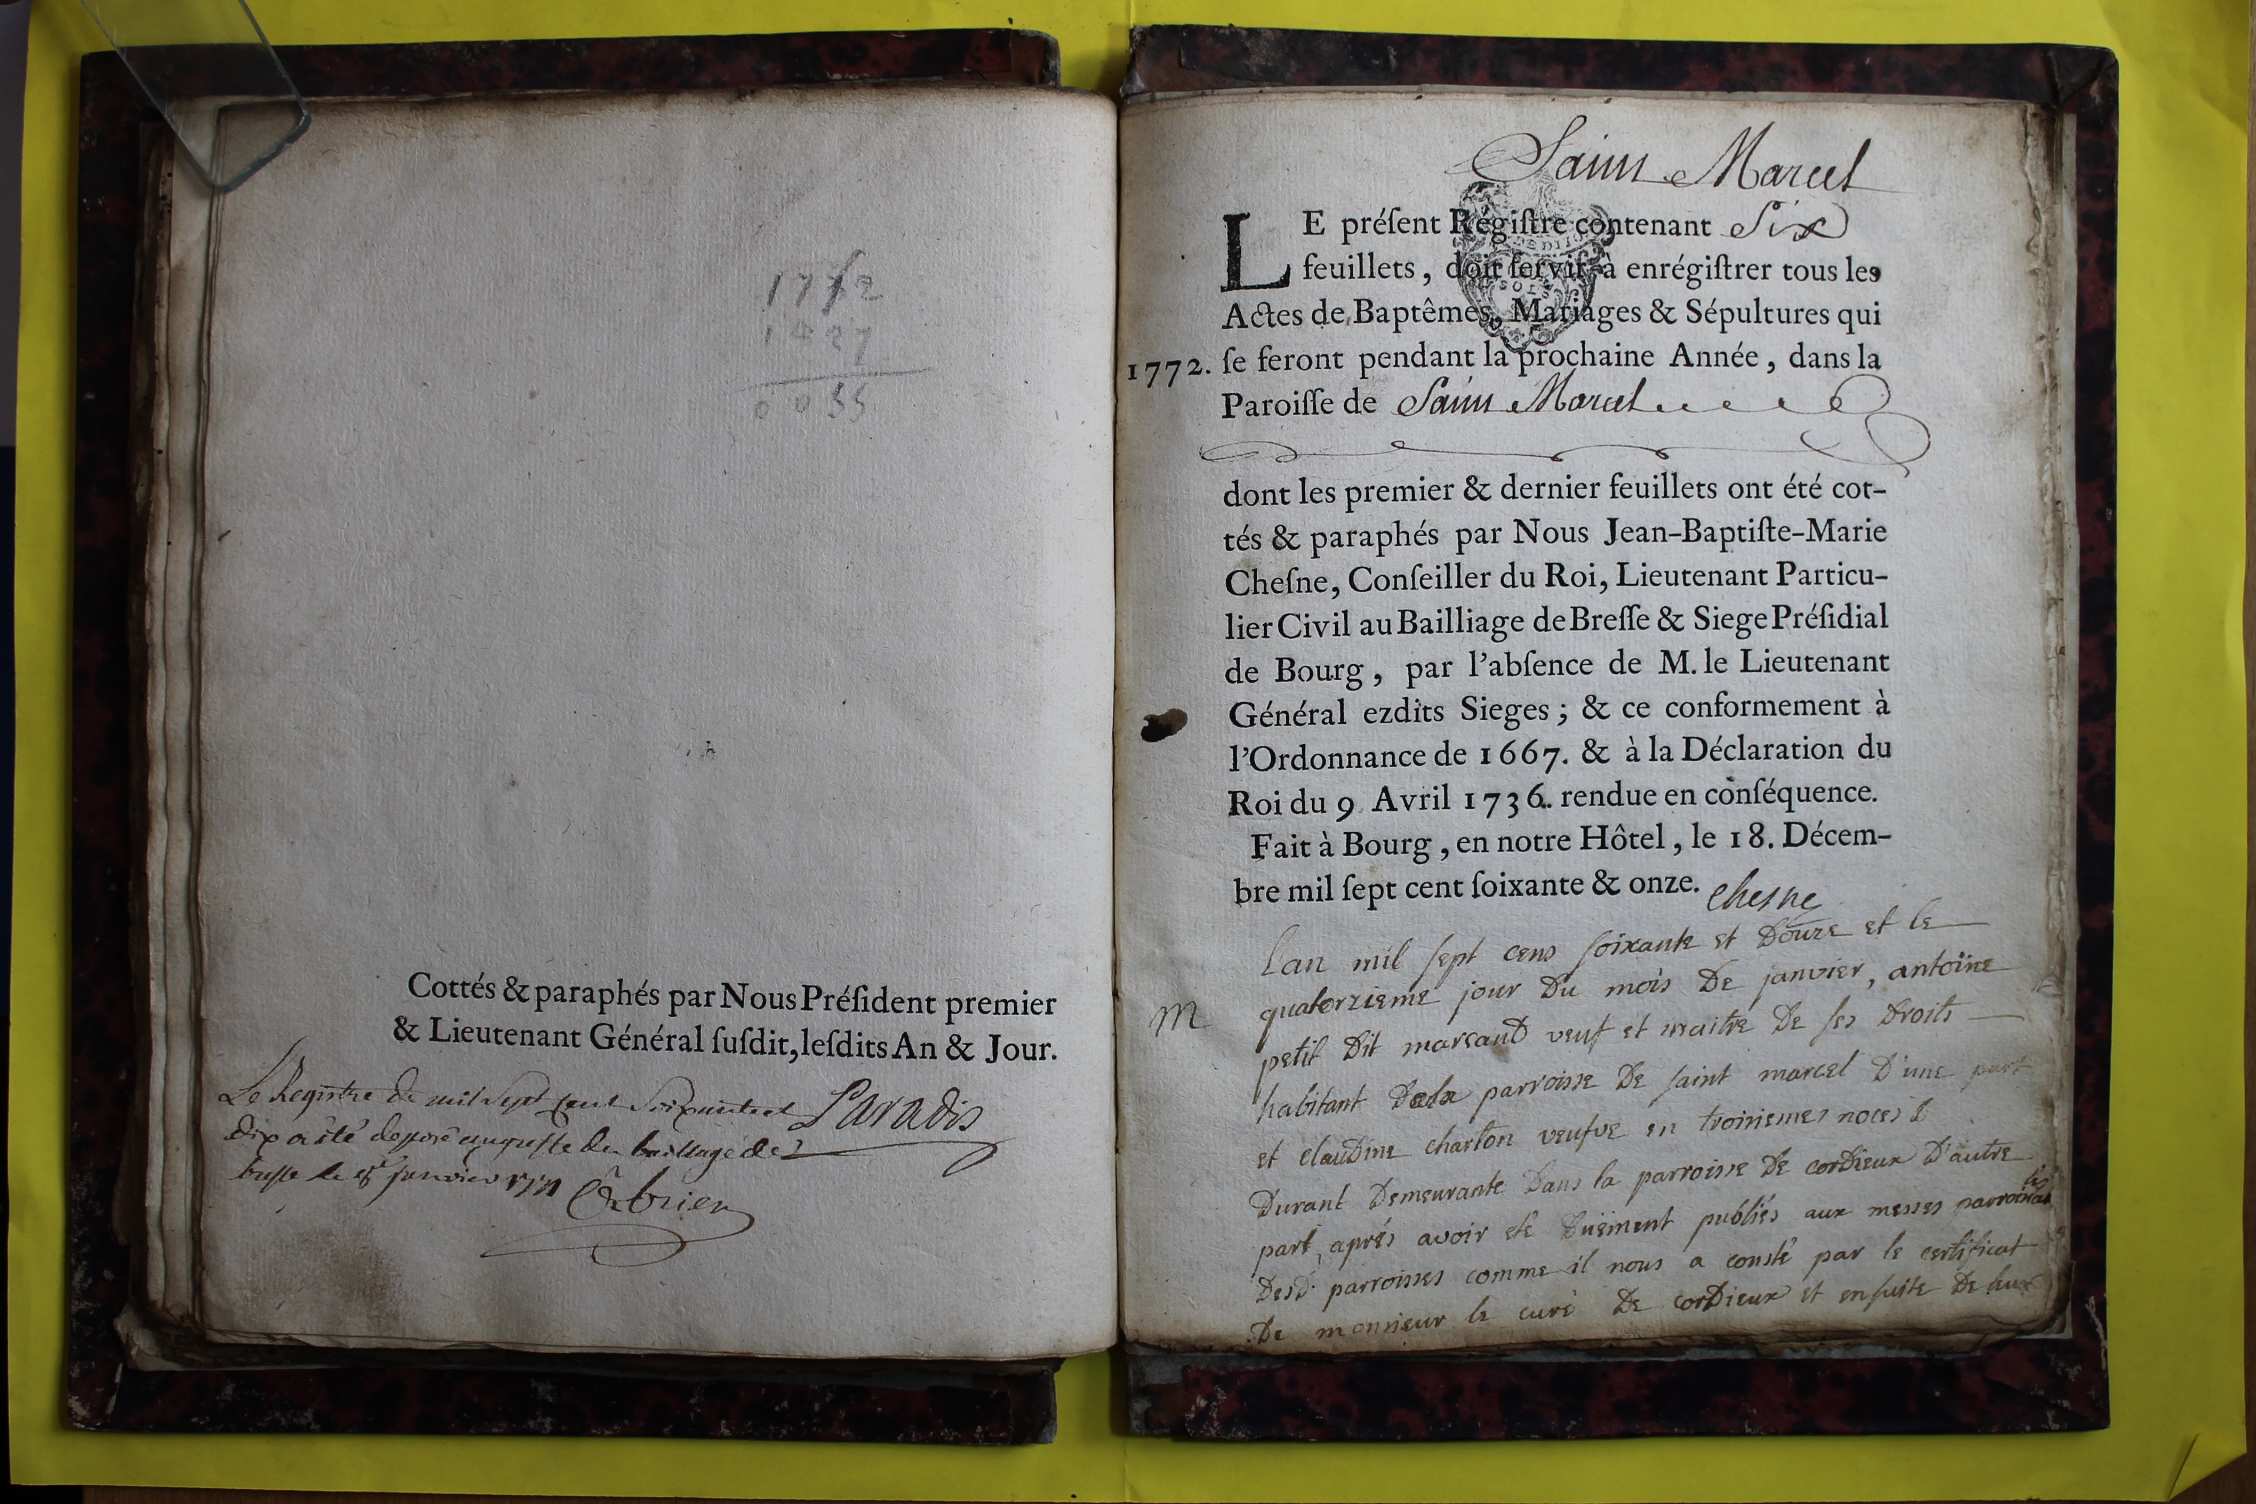 1772
1437
0035
Cottés & paraphés par Nous Préſident premier
& Lieutenant Général ſuſdit, leſdits An & Jour.
Le Registre de mil sept cent soixante et
Paradis
dix a été deposé au greffe du bailliage de
bresse le janvier 1771
Saint Marcel
LE préſent Régiſtre contenant Six
feuillets, doit ſervir à enrégiſtrer tous les
Actes de Baptêmes, Mariages & Sépultures qui
1772. ſe feront pendant la prochaine Année, dans la
Paroiſſe de Saint Marcel
dont les premier & dernier feuillets ont été cot-
tés & paraphés par Nous Jean-Baptiſte-Marie
Cheſne, Conſeiller du Roi, Lieutenant Particu-
lier Civil au Bailliage de Breſſe & Siege Préſidial
de Bourg, par l'abſence de M. le Lieutenant
Général ezdits Sieges ; & ce conformement à
l'Ordonnance de 1667. & à la Déclaration du
Roi du 9 Avril 1736. rendue en conſéquence.
Fait à Bourg, en notre Hôtel, le 18. Décem-
bre mil ſept cent ſoixante & onze.
Chesne
L'an mil sept cens soixante et Douze et le
M
quatorzieme jour Du mois De janvier, antoine
petit Dit marsaud veuf et maitre De ses Droits
habitant Dela parroisse De saint marcel D'une part
et claudine charton veufve en troisiemes noces
Durant Demeurante Dans la parroisse De cordieux D'autre
part, aprés avoir eté Duëment publiés aux messes parroissiales
DesD. parroisses comme il nous a consté par le certificat
De monsieur le curé De cordieux et ensuite De